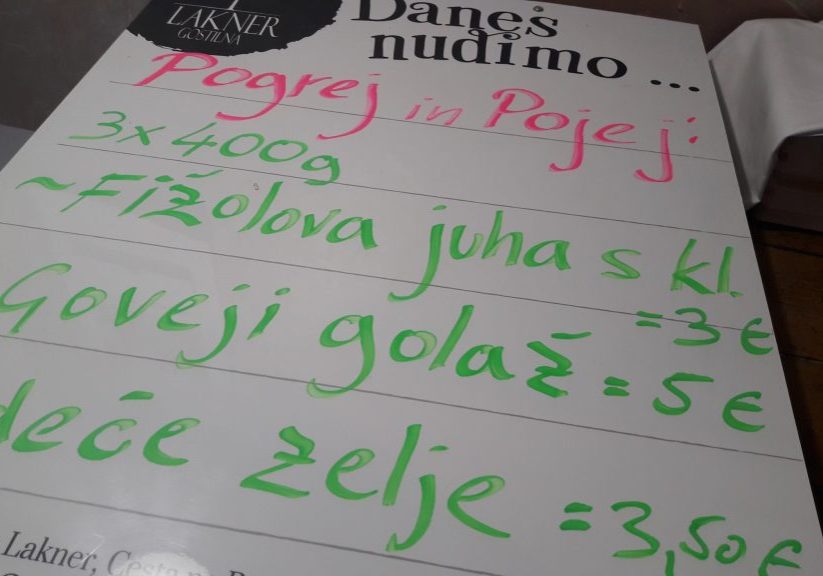 LAKNER
GOSTILNA
Danes
nudimo ...
Pogrej in Pojej:
3x400g
~Fižolova juha s kl.
=3€
Goveji golaž = 5€
deče zelje =3,50€
Lakner, Cesta na